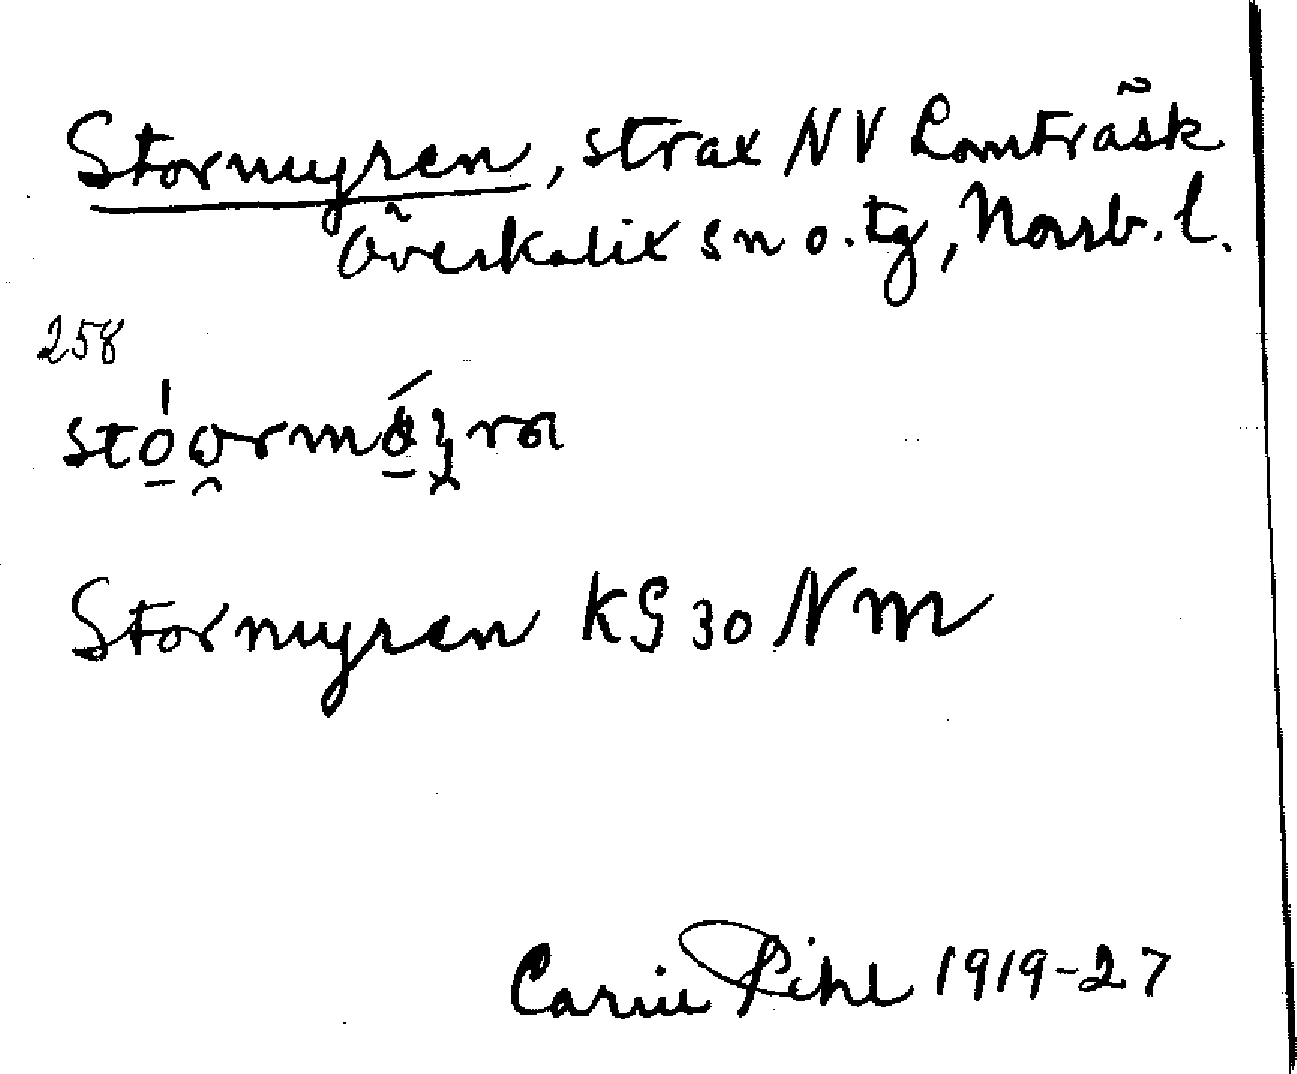 Stormyren, strax NV Lomträsk
Överkalix sn o. tg, Norrb. l.
258
Stormyren KG 30 Nm
Carin Pihl 1919-27